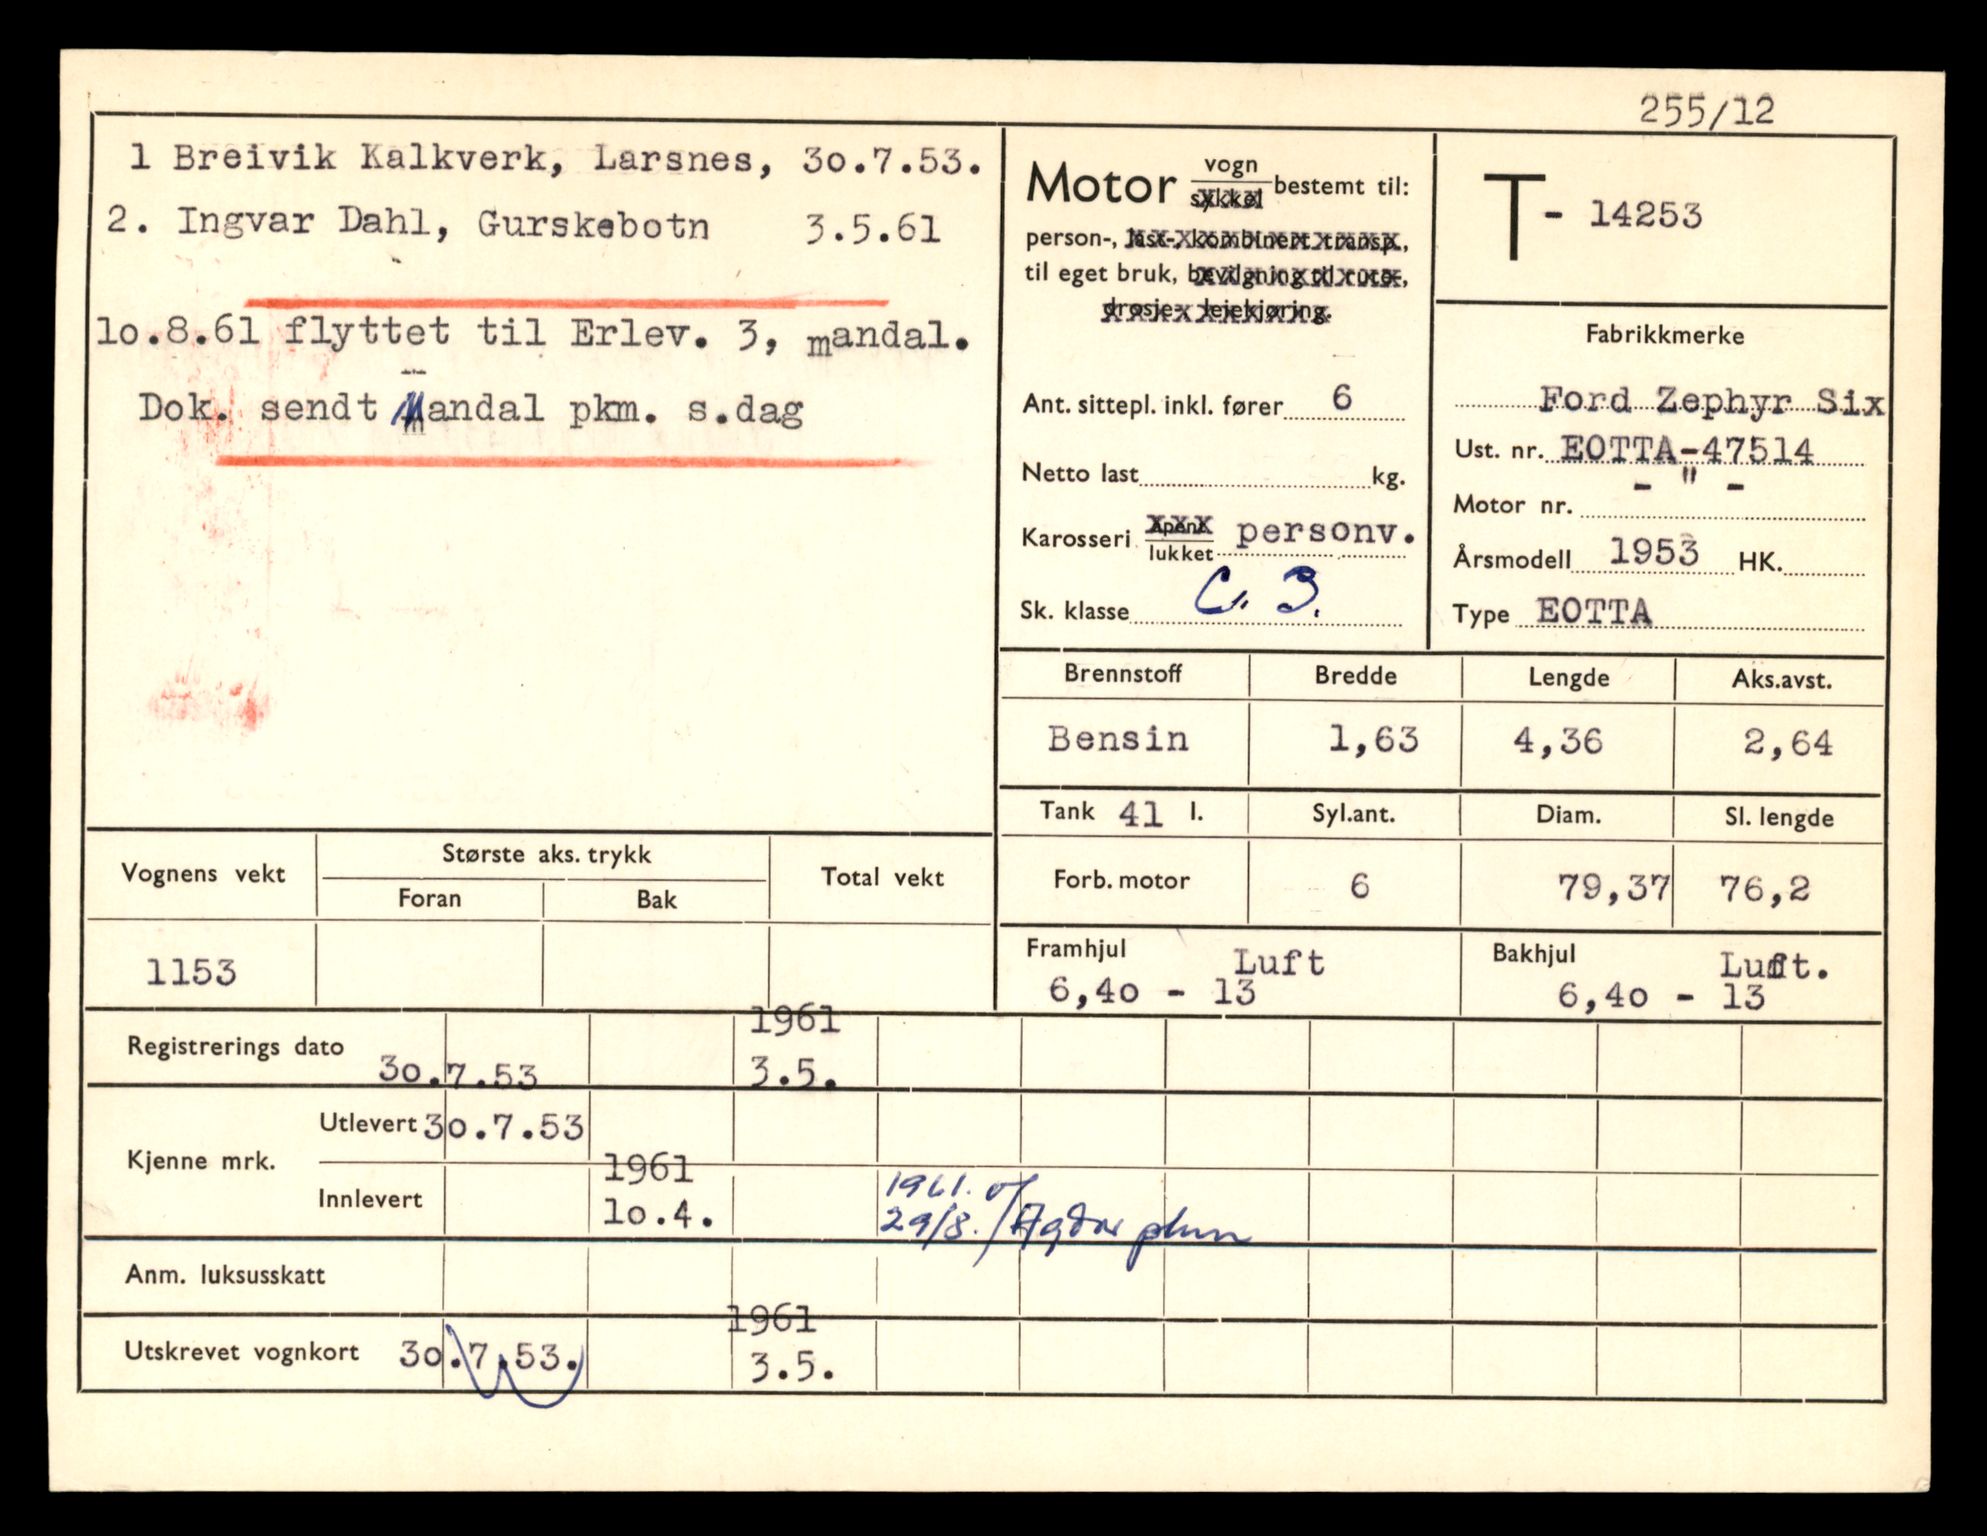 255/12
1 Breivik Kalkverk, Larsnes, 3o.7.53.
2. Ingvar Dahl, Gurskebotn 3.5.61
lo.8.61 flyttet til Erlev. 3, mandal.
Dok. sendt Mandal pkm. s.dag
Motor vogn
sykkel bestemt til:
person-, last-, kombinert transp.,
til eget bruk, bevilgning til rute-,
drosje- leiekjøring.
Ant. sittepl. inkl. fører 6
Netto last kg.
Karosseri åpent
lukket personv.
Sk. klasse C. 3.
T- 14253
Fabrikkmerke
Ford Zephyr Six
Ust. nr. EOTTA-47514
Motor nr. - " -
Årsmodell 1953 HK.
Type EOTTA
Brennstoff Bredde Lengde Aks.avst.
Bensin 1,63 4,36 2,64
Tank 41 l. Syl.ant. Diam. Sl. lengde
Forb. motor 6 79,37 76,2
Framhjul Luft
6,4o - 13
Bakhjul Luft.
6,4o - 13
Vognens vekt Største aks. trykk Total vekt
Foran Bak
1153
Registrerings dato 3o.7.53 1961
3.5.
Kjenne mrk. Utlevert 3o.7.53
Innlevert 1961
lo.4.
1961.
29/8. / Agder
Anm. luksusskatt
Utskrevet vognkort 3o.7.53. 1961
3.5.